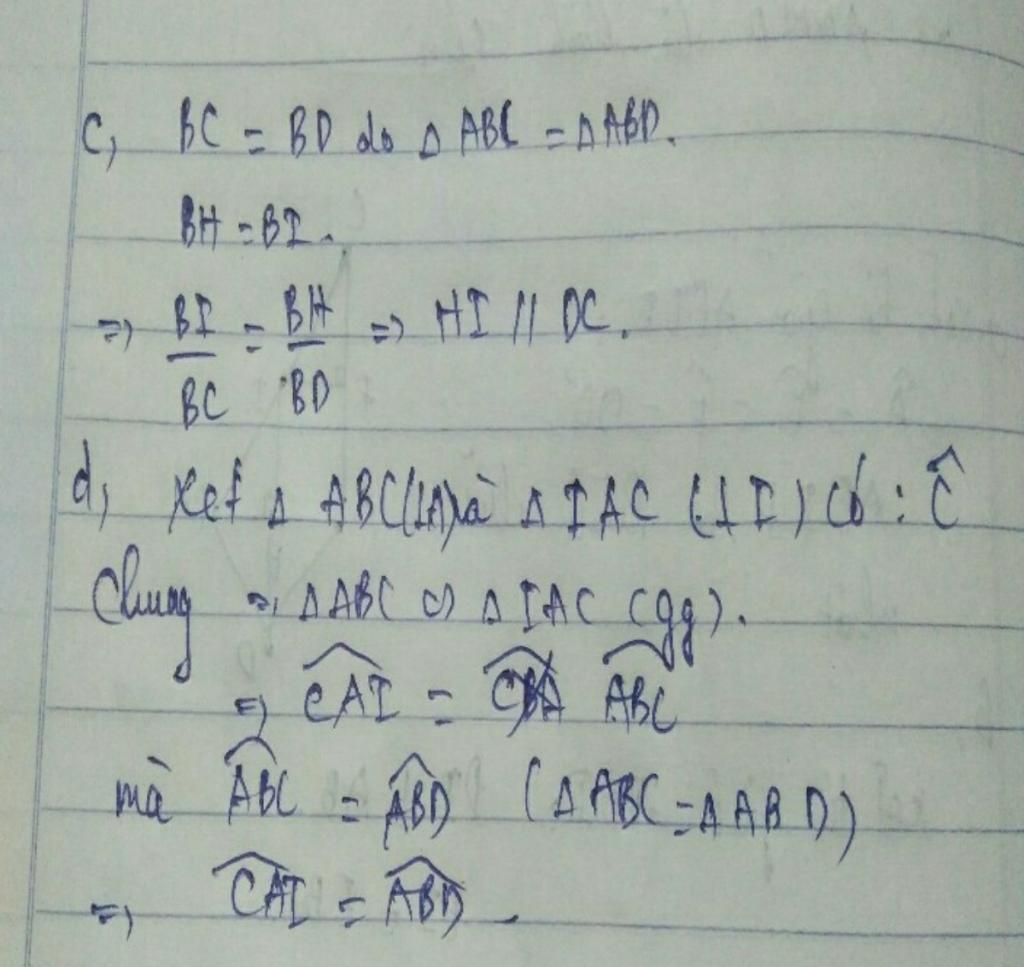 c, BC = BD do Δ ABC = Δ ABD.
BH = BI.
=> BI/BC = BH/BD => HI // DC.
d, Xét Δ ABC (⊥A) và Δ IAC (⊥ I) có : Ĉ
Chung => Δ ABC ∽ Δ IAC (gg).
=> \widehat{CAI} = \widehat{ABC}
mà \widehat{ABC} = \widehat{ABD} (Δ ABC = Δ ABD)
=> \widehat{CAI} = \widehat{ABD}.